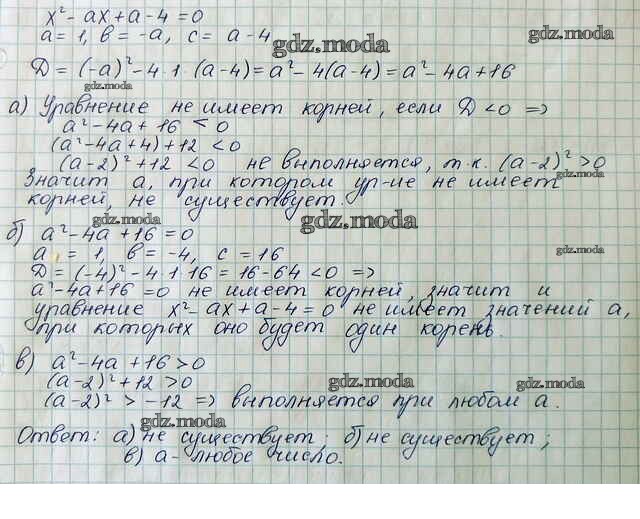 x² - ax + a - 4 = 0
a = 1, в = -a, c = a - 4
gdz.moda
D = (-a)² - 4·1·(a-4) = a² - 4(a-4) = a² - 4a + 16
gdz.moda
а) Уравнение не имеет корней, если D < 0 =>
a² - 4a + 16 < 0
(a² - 4a + 4) + 12 < 0
(a-2)² + 12 < 0 не выполняется, т.к. (a-2)² > 0
gdz.moda
Значит а, при котором ур-ие не имеет
корней, не существует.
gdz.moda gdz.moda
б) a² - 4a + 16 = 0
a = 1, в = -4, c = 16
gdz.moda
D = (-4)² - 4·1·16 = 16 - 64 < 0 =>
a² - 4a + 16 = 0 не имеет корней, значит и
уравнение x² - ax + a - 4 = 0 не имеет значений а,
при которых оно будет один корень.
в) a² - 4a + 16 > 0
(a-2)² + 12 > 0
gdz.moda gdz.moda
(a-2)² > -12 => выполняется при любом а.
gdz.moda
Ответ: а) не существует; б) не существует;
в) а - любое число.